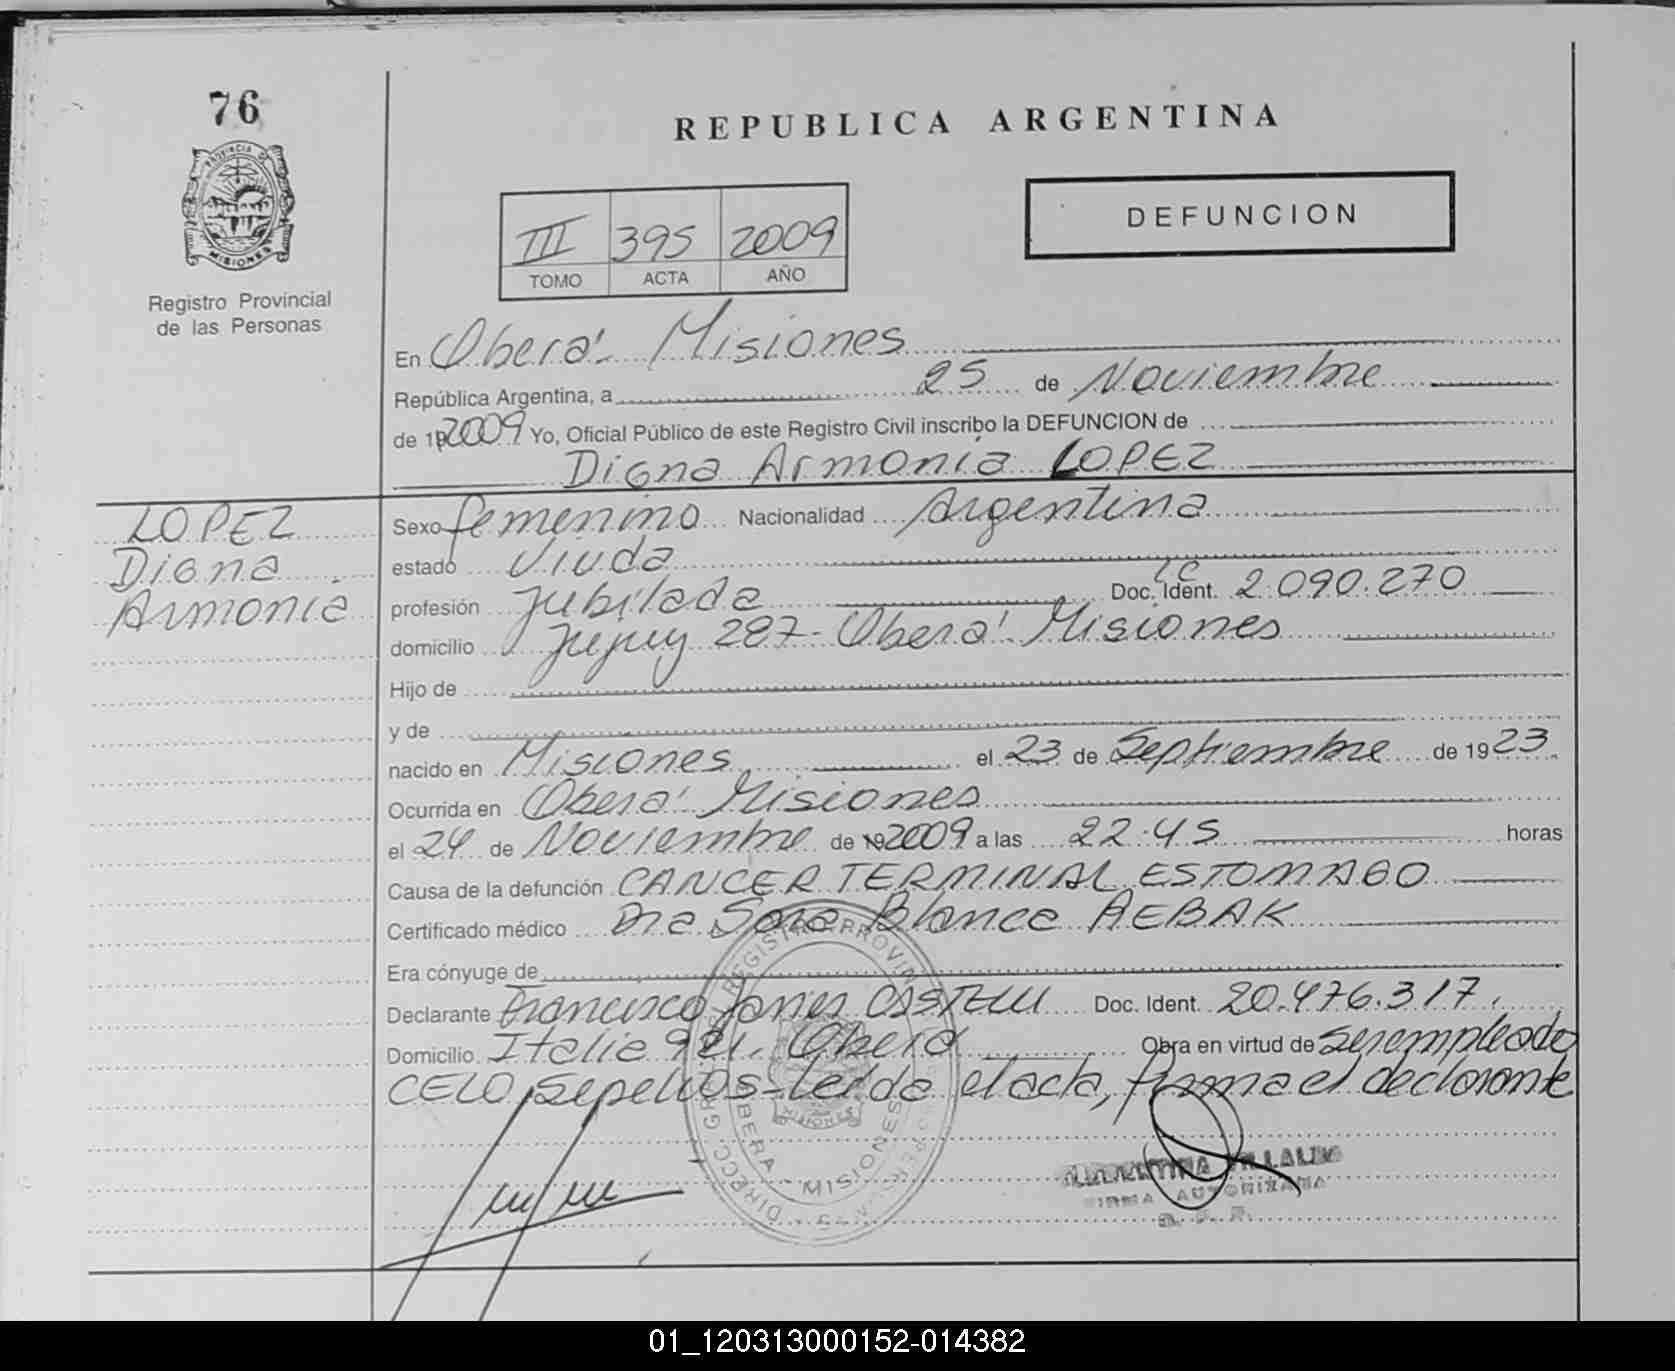 76
PROVINCIA DE
MISIONES
Registro Provincial
de las Personas
REPUBLICA ARGENTINA
III 395 2009
TOMO ACTA AÑO
DEFUNCION
En Oberá - Misiones
República Argentina, a 25 de Noviembre
de 19 2009 Yo, Oficial Público de este Registro Civil inscribo la DEFUNCION de
Digna Armonia LOPEZ
LOPEZ
Digna
Armonia
Sexo femenino Nacionalidad Argentina
estado Viuda
profesión Jubilada Doc. Ident. LC 2.090.270
domicilio Jujuy 287 - Oberá - Misiones
Hijo de
y de
nacido en Misiones el 23 de Septiembre de 1923
Ocurrida en Oberá - Misiones
el 24 de Noviembre de 19 2009 a las 22:45 horas
Causa de la defunción CANCER TERMINAL ESTOMAGO
Certificado médico Dra Sara Blanca AEBAK
Era cónyuge de
Declarante Francisco Javier CASTELLI Doc. Ident. 20.476.317.
Domicilio Italia 921. Oberá Obra en virtud de ser empleado
CELO sepelios - Leída el acta, firma el declarante
OBERA - MISIONES
MISIONES
VILLALBA
FIRMA AUTORIZADA
01_120313000152-014382